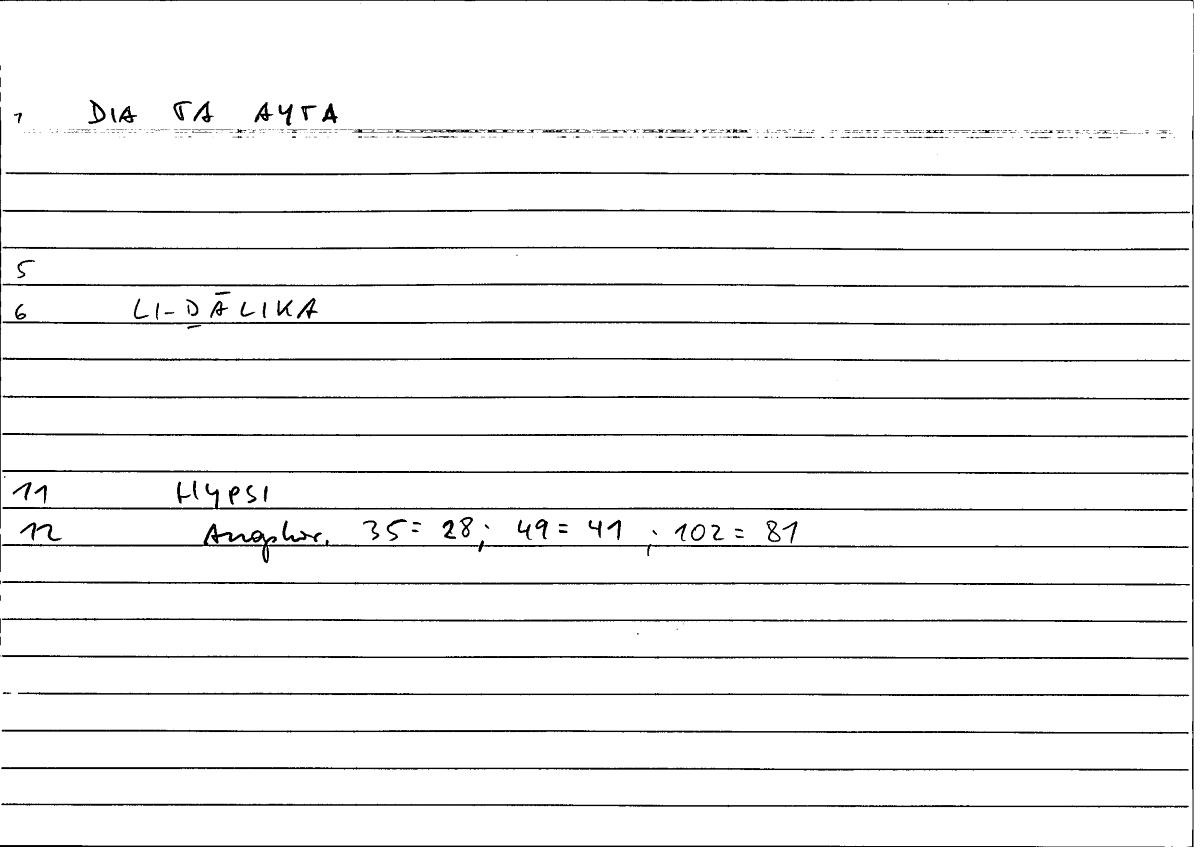 1 DIA TA AYTA
5
6 LI-ḎĀLIKA
11 Hypsi
12 Angphor. 35 = 28; 49 = 41; 102 = 81